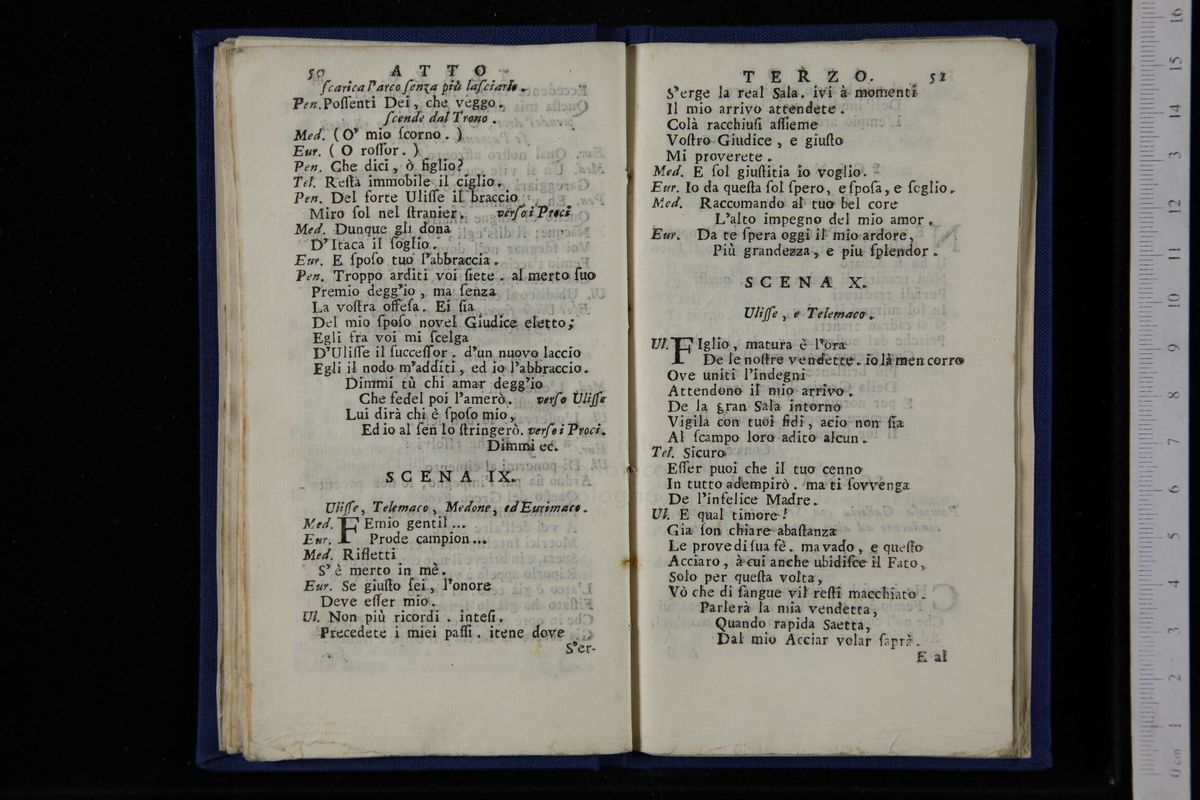 50 ATTO
ſcarica l'arco ſenza più laſciarlo.
Pen. Poſſenti Dei, che veggo.
ſcende dal Trono.
Med. (O' mio ſcorno. )
Eur. ( O roſſor. )
Pen. Che dici, ò figlio?
Tel. Reſtà immobile il ciglio.
Pen. Del forte Uliſſe il braccio
Miro ſol nel ſtranier. verſo i Proci
Med. Dunque gli dona
D'Itaca il ſoglio.
Eur. E ſpoſo tuo l'abbraccia.
Pen. Troppo arditi voi ſiete. al merto ſuo
Premio degg'io, ma ſenza
La voſtra offeſa. Ei ſia
Del mio ſpoſo novel Giudice eletto;
Egli fra voi mi ſcelga
D'Uliſſe il ſucceſſor. d'un nuovo laccio
Egli il nodo m'additi, ed io l'abbraccio.
Dimmi tù chi amar degg'io
Che fedel poi l'amerò. verſo Uliſſe
Lui dirà chi è ſpoſo mio,
Ed io al ſen lo ſtringerò. verſo i Proci.
Dimmi ec.
SCENA IX.
Uliſſe, Telemaco, Medone, ed Eurimaco.
Med. FEmio gentil ...
Eur. Prode campion...
Med. Rifletti
S' è merto in mè.
Eur. Se giuſto ſei, l'onore
Deve eſſer mio.
Ul. Non più ricordi. inteſi.
Precedete i miei paſſi. itene dove
S'er-
TERZO. 51
S'erge la real Sala. ivi à momenti
Il mio arrivo attendete.
Colà racchiuſi aſſieme
Voſtro Giudice, e giuſto
Mi proverete.
Med. E ſol giuſtitia io voglio.
Eur. Io da queſta ſol ſpero, e ſpoſa, e ſeglio.
Med. Raccomando al tuo bel core
L'alto impegno del mio amor.
Eur. Da te ſpera oggi il mio ardore,
Più grandezza, e piu ſplendor.
SCENA X.
Uliſſe, e Telemaco.
Ul. FIglio, matura è l'ora
De le noſtre vendette. io là men corro
Ove uniti l'indegni
Attendono il mio arrivo.
De la gran Sala intorno
Vigila con tuoi fidi, acio non ſia
Al ſcampo loro adito alcun.
Tel. Sicuro
Eſſer puoi che il tuo cenno
In tutto adempirò. ma ti ſovvenga
De l'infelice Madre.
Ul. E qual timore!
Gia ſon chiare abaſtanza
Le prove di ſua fè. ma vado, e queſto
Acciaro, à cui anche ubidiſce il Fato,
Solo per queſta volta,
Vò che di ſangue vil reſti macchiato.
Parlerà la mia vendetta,
Quando rapida Saetta,
Dal mio Acciar volar ſaprà.
E al